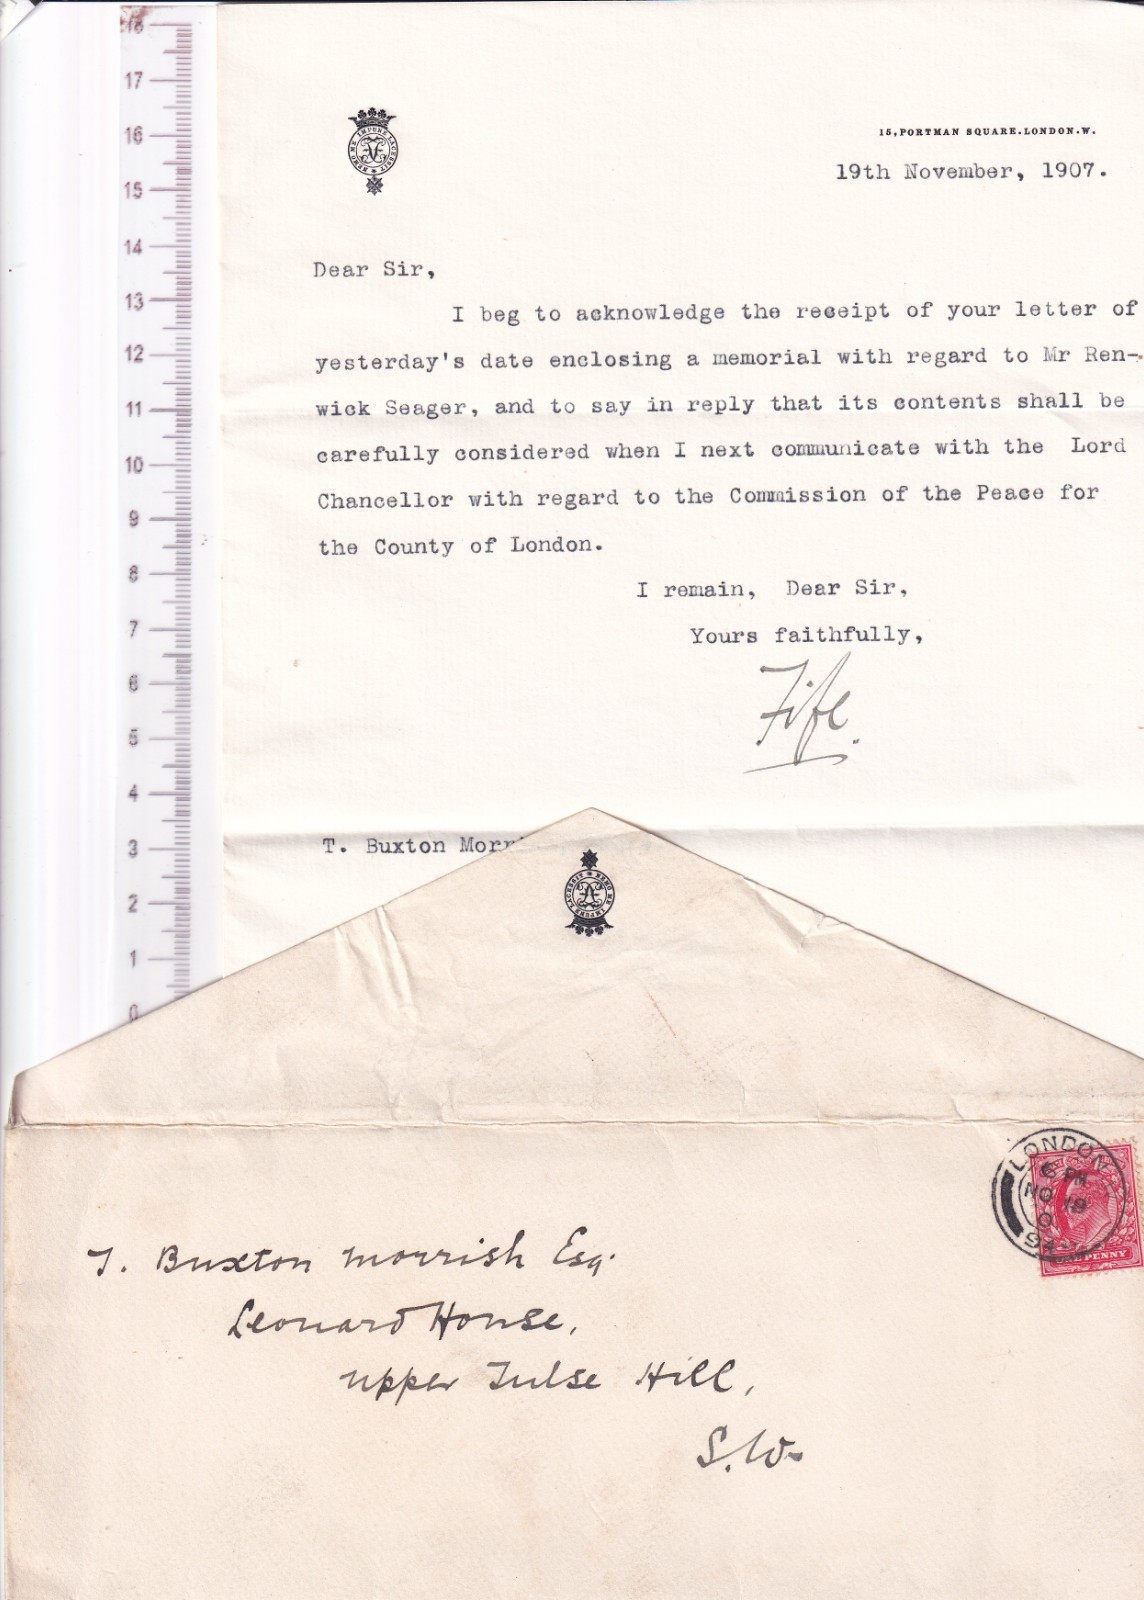 18
17
16
15
14
13
12
11
10
9
8
7
6
5
4
3
2
1
0
NEMO ME IMPUNE LACESSIT
15, PORTMAN SQUARE. LONDON. W.
19th November, 1907.
Dear Sir,
I beg to acknowledge the receipt of your letter of
yesterday's date enclosing a memorial with regard to Mr Ren-
wick Seager, and to say in reply that its contents shall be
carefully considered when I next communicate with the Lord
Chancellor with regard to the Commission of the Peace for
the County of London.
I remain, Dear Sir,
Yours faithfully,
Fife.
T. Buxton Morr
NEMO ME IMPUNE LACESSIT
LONDON
6 PM
NO 19
PENNY
T. Buxton Morrish Esq.
Leonard House,
Upper Tulse Hill,
S.W.